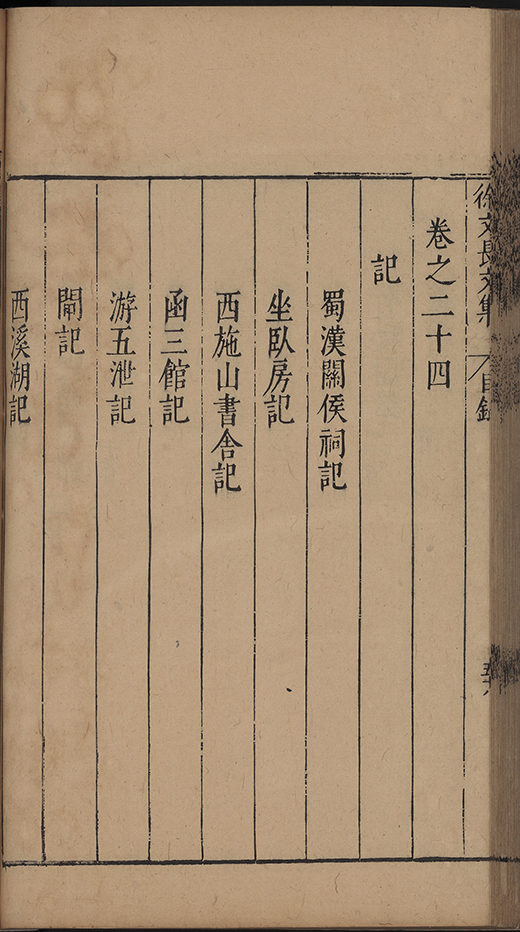 徐文長文集 目錄
卷之二十四
記
蜀漢關侯祠記
坐臥房記
西施山書舍記
函三館記
游五泄記
閘記
西溪湖記